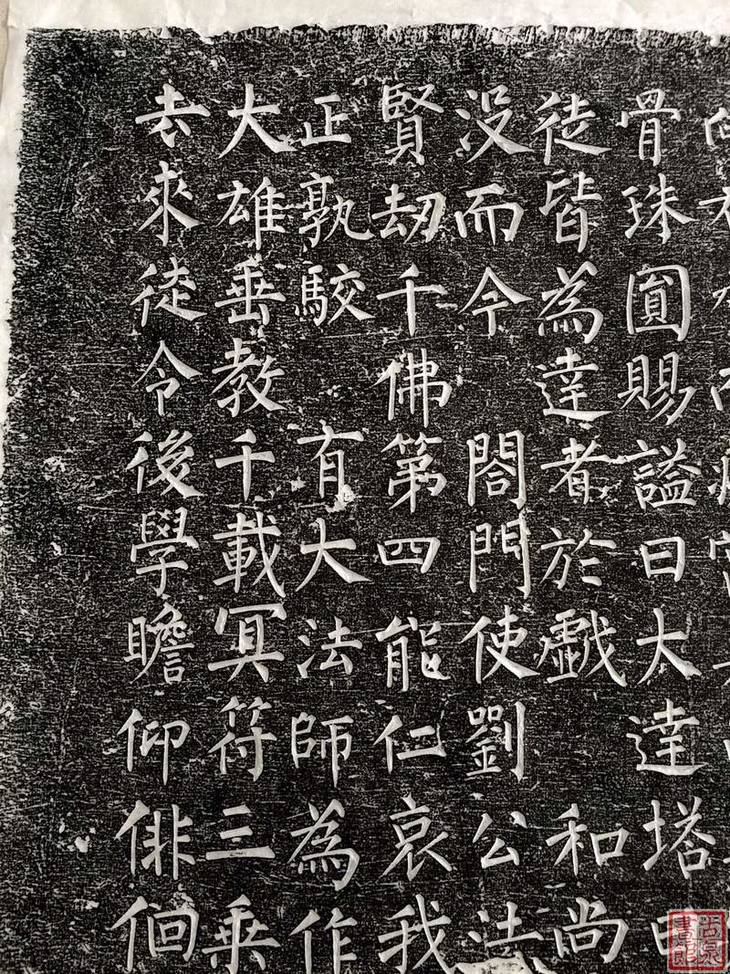 骨珠圎賜謚曰大達塔曰
徒皆為達者於戲　和尚
没而今　閤門使劉公法
賢劫千佛第四能仁哀我
正孰駮　有大法師為作
大雄垂教千載冥符三乘
去來徒令後學瞻仰俳佪